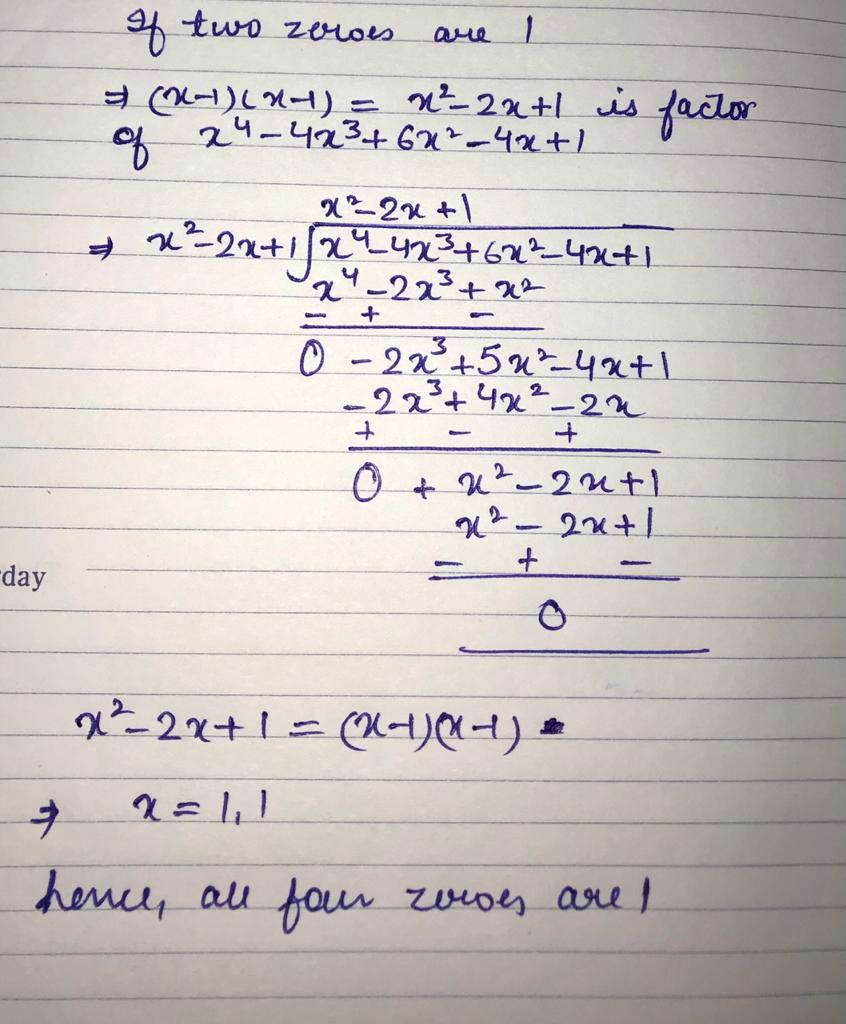 If two zeroes are 1
⇒ (x-1)(x-1) = x²-2x+1 is factor
of x⁴-4x³+6x²-4x+1
x²-2x+1
⇒ x²-2x+1 x⁴-4x³+6x²-4x+1
x⁴-2x³+x²
- + -
0 -2x³+5x²-4x+1
-2x³+4x²-2x
+ - +
0 + x²-2x+1
x²-2x+1
- + -
day
0
x²-2x+1 = (x-1)(x-1)
⇒ x = 1,1
hence, all four zeroes are 1